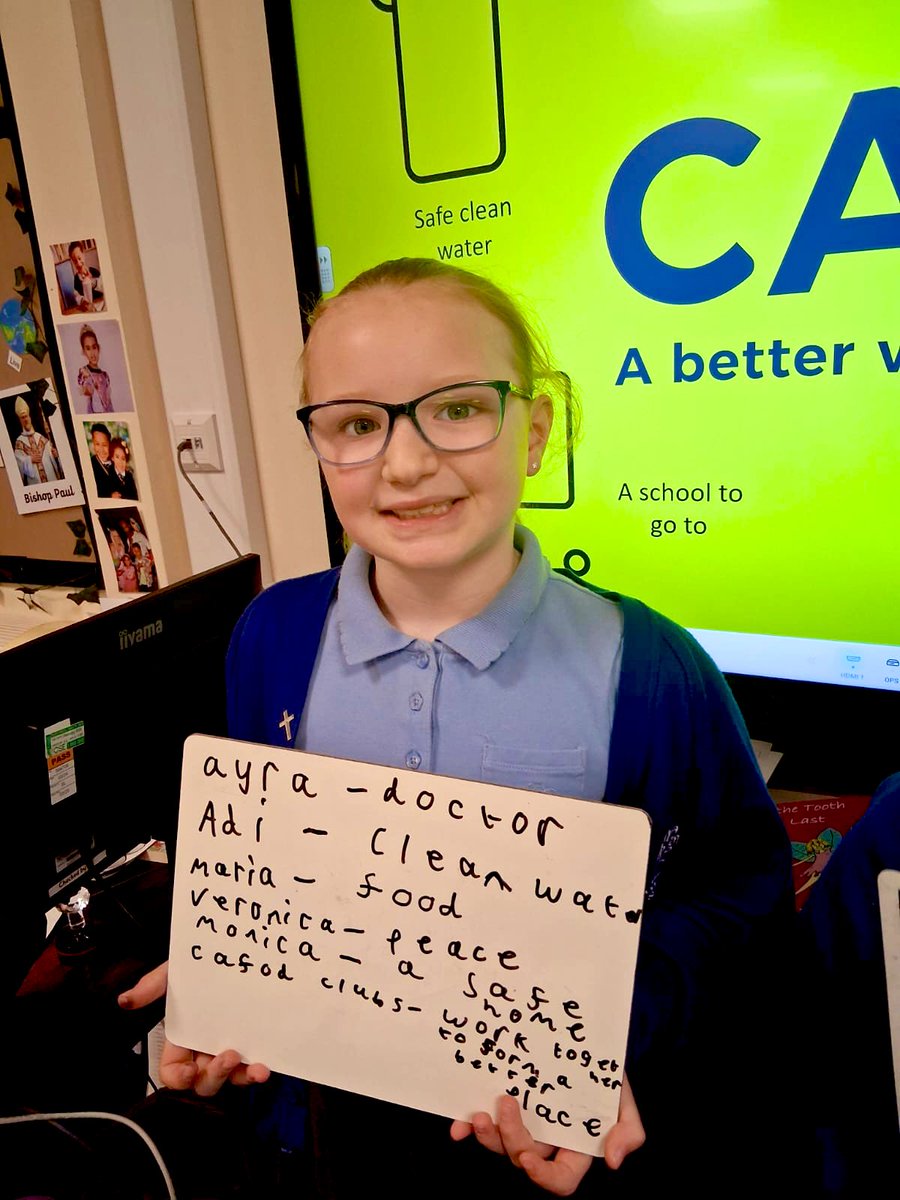 Safe clean
water
CA
A better
A school to
go to
Bishop Paul
iiyama
PASS
the Tooth
Last
HDMI 1
OPS
ayra - doctor
Adi - Clean water
maria - food
veronica - peace
monica - a safe
home
cafod clubs - work toget
her
to form a
better
place